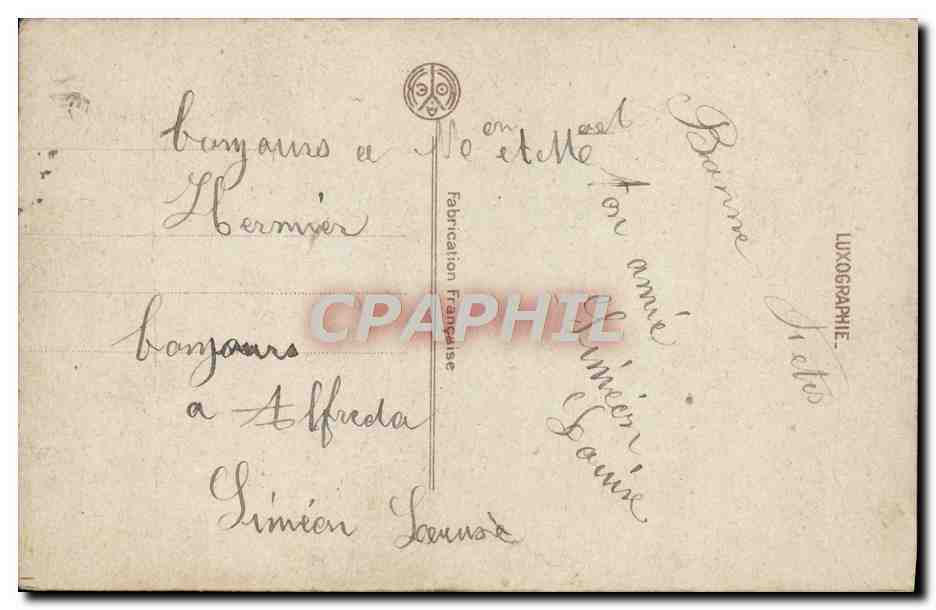 bonjours a Me et Mme
Hermier
bonjours
a Alfreda
Siméon Louise
Bonne
Fetes
ton amie
Siméon
Louise
Fabrication Française
LUXOGRAPHIE.
CPAPHIL